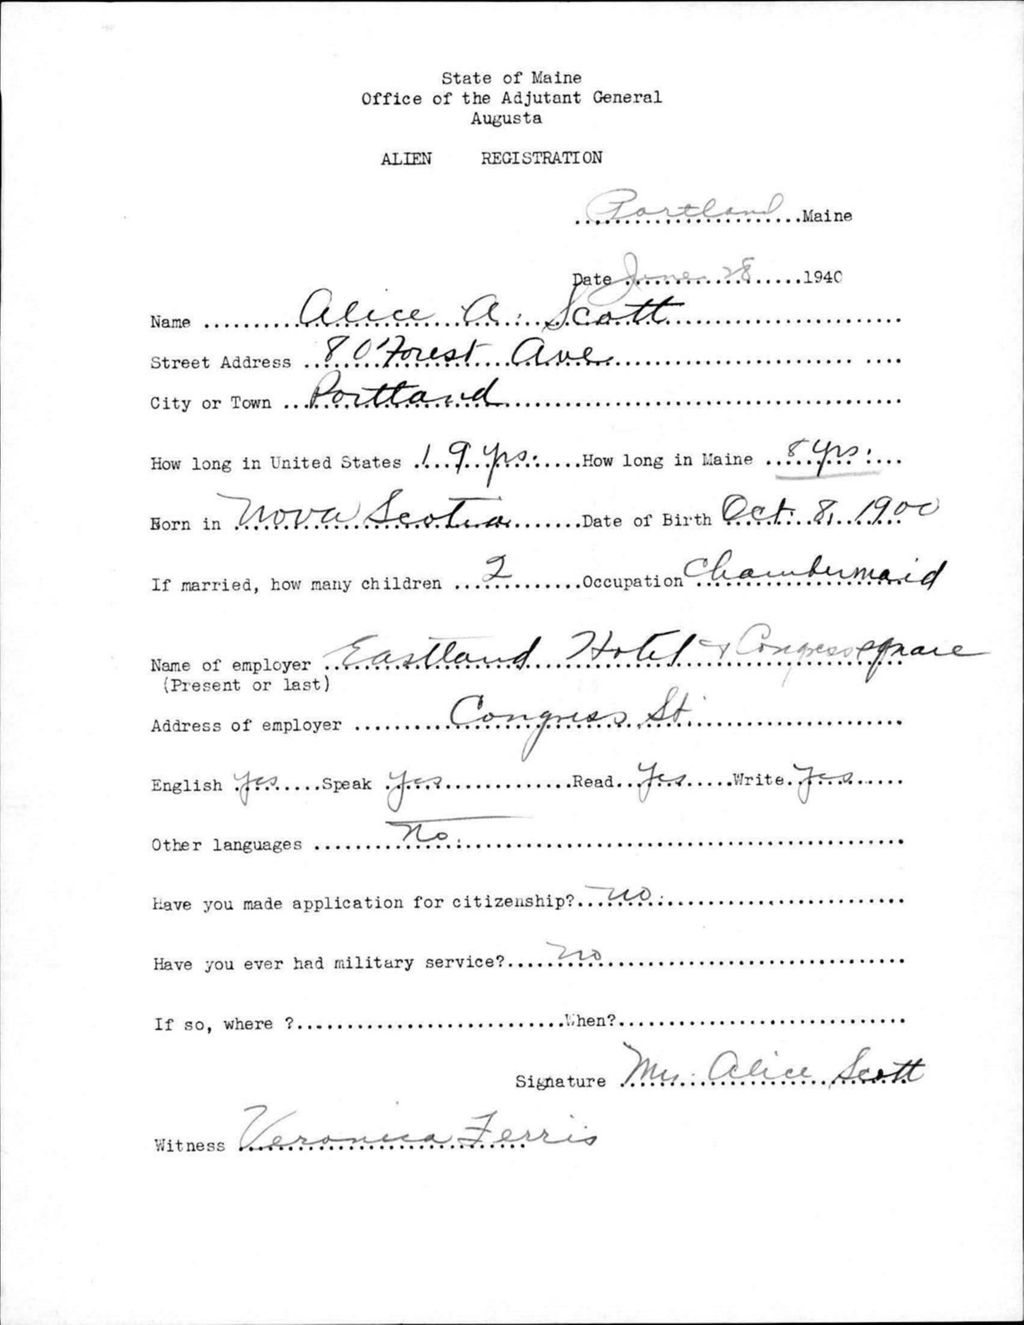 State of Maine
Office of the Adjutant General
Augusta
ALIEN REGISTRATION
Portland Maine
Date June 28 1940
Name Alice A. Scott
Street Address 80 Forest Ave
City or Town Portland
How long in United States 19 yrs. How long in Maine 8 yrs.
Born in Nova Scotia Date of Birth Oct. 8, 1900
If married, how many children 2 Occupation Chambermaid
Name of employer Eastland Hotel & Congress Square
(Present or last)
Address of employer Congress St.
English Yes Speak Yes Read Yes Write Yes
Other languages No.
Have you made application for citizenship? no.
Have you ever had military service? no
If so, where ? When?
Signature Mrs. Alice Scott
Witness Veronica Ferris